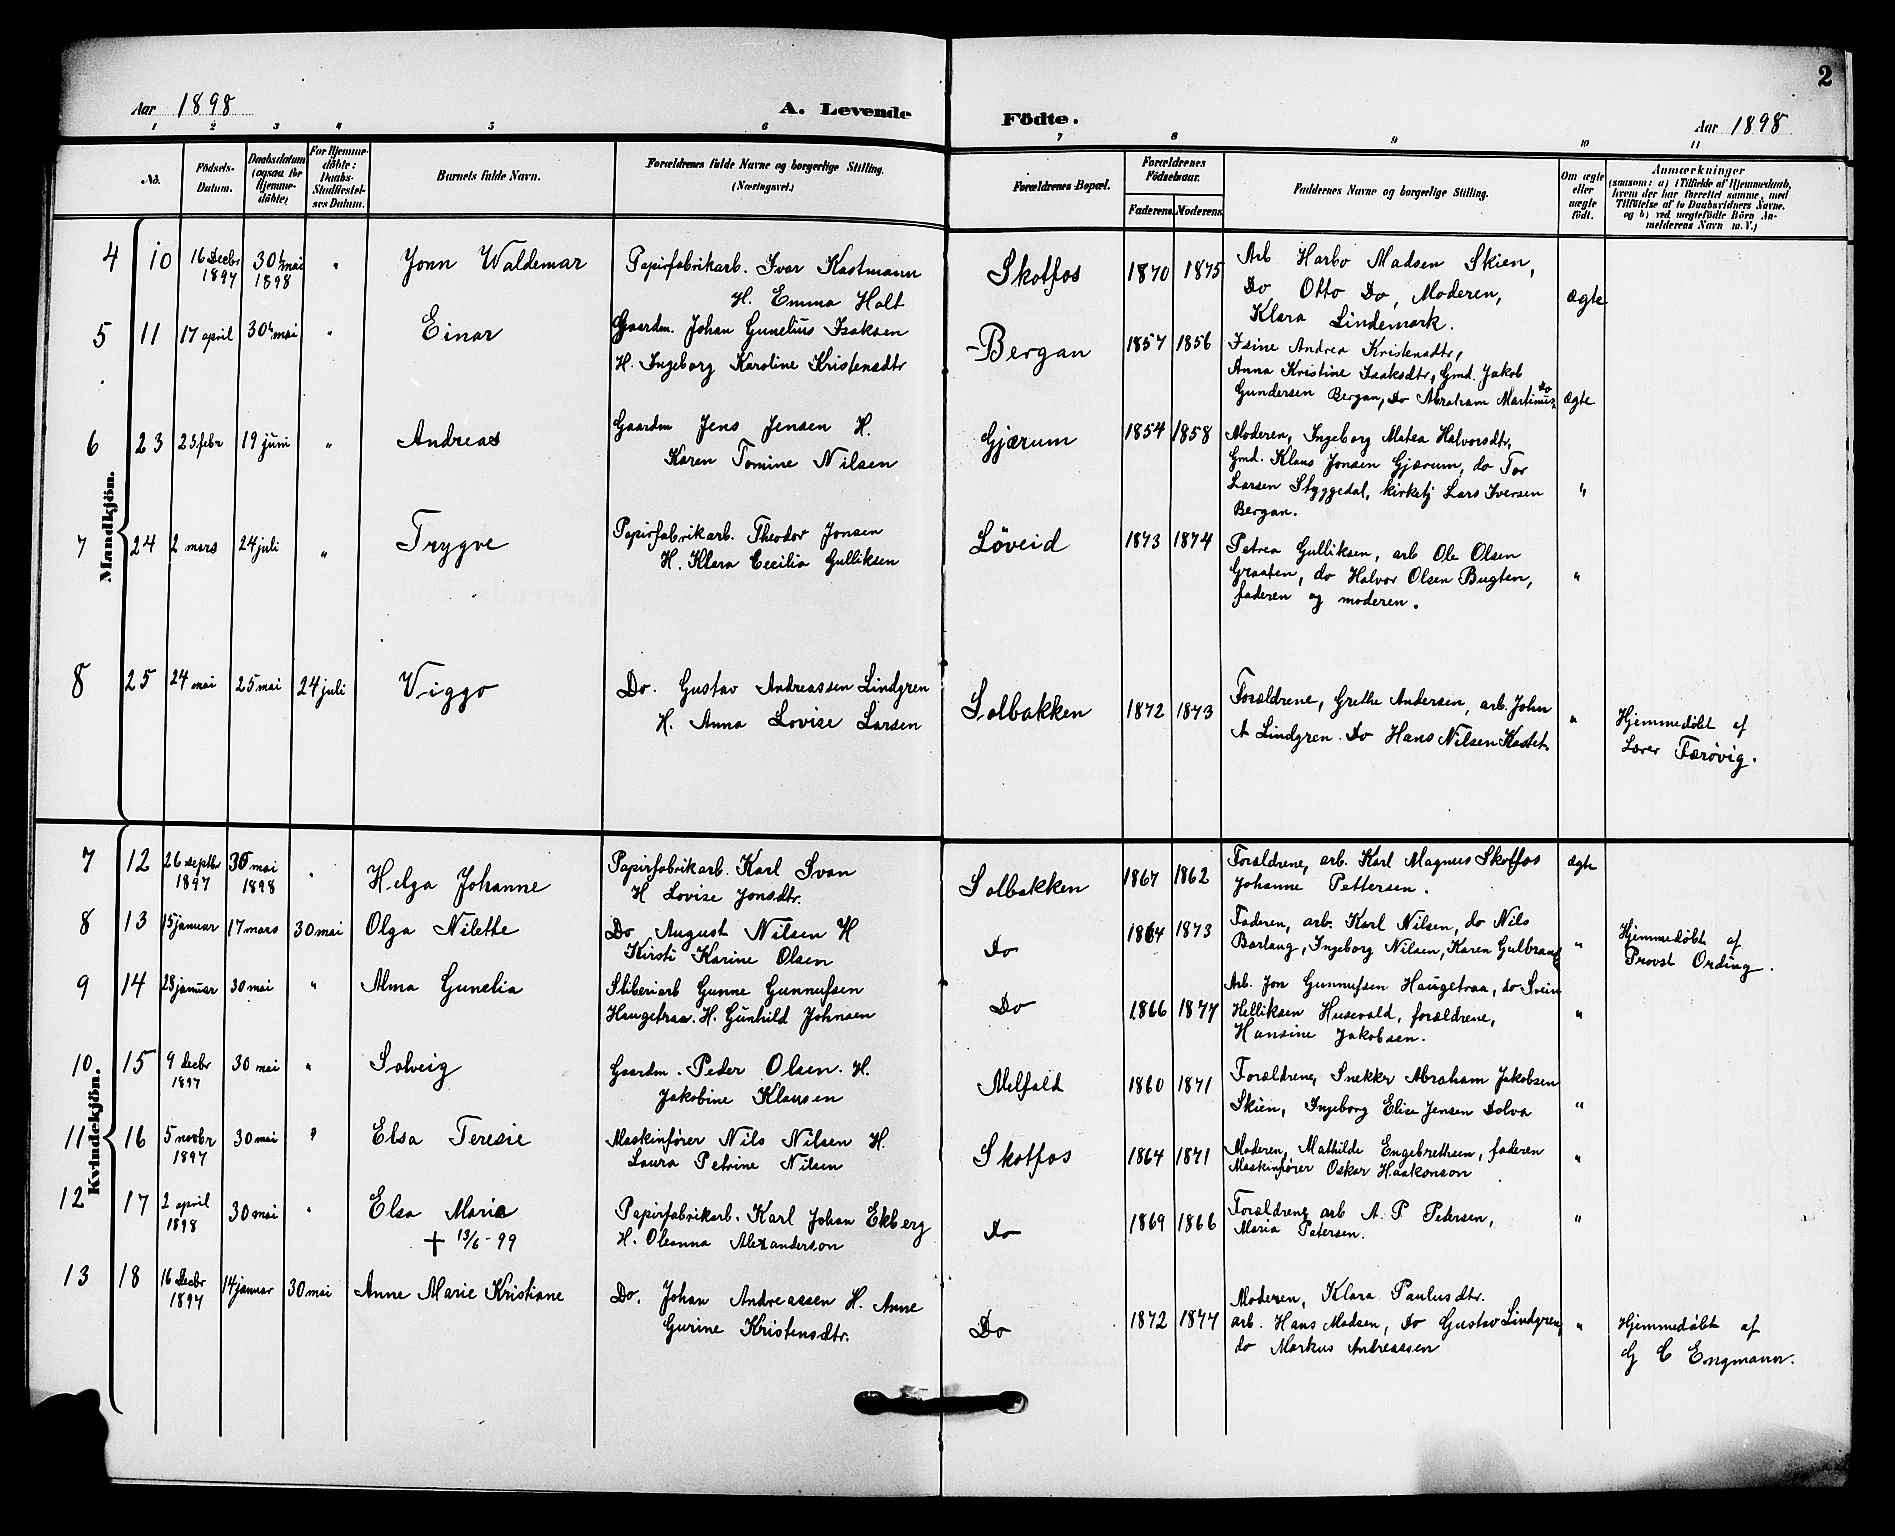 2
Aar 1898 A. Levende Födte. Aar 1898
1 2 3 4 5 6 7 8 9 10 11
No. Födsels-Datum. Daabsdatum (ogsaa for Hjemmedöbte) For Hjemmedöbte: Daabs-Stadfæstelses Datum. Barnets fulde Navn. Forældrenes fulde Navne og borgerlige Stilling. (Næringsvei.) Forældrenes Bopæl. Forældrenes Födselsaar. Faderens Moderens Faddernes Navne og borgerlige Stilling. Om ægte eller uægte födt. Anmærkninger
(saasom: a) i Tilfælde af Hjemmedaab,
hvem der har forrettet samme, med
Tilföielse af to Daabsvidners Navne.
og b) ved uægtefödte Börn An-
melderens Navn m. V.)
Mandkjön.
4 10 16 Decbr 1897 30 mai 1898 " Jonn Waldemar
Papirfabrikarb. Ivar Kastmann
H. Emma Holt
Skotfos 1870 1875
Arb Harbo Madsen Skien,
Do Otto Do, Moderen,
Klara Lindemark.
ægte
5 11 17 april 30 mai " Einar
Gaardm. Johan Gunelius Isaksen
H. Ingeborg Karoline Kristensdtr
Bergan 1857 1856
Isine Andrea Kristensdtr,
Anna Kristine Isaksdtr, Gmd. Jakob
Gundersen Bergan, Do Abraham Martinius do
ægte
6 23 23 febr 19 juni " Andreas
Gaardm Jens Jensen H.
Karen Tomine Nilsen
Gjærum 1854 1858
Moderen, Ingeborg Matea Halvorsdtr,
Gmd. Klaus Jonsen Gjærum, do Tor
Larsen Styggedal, kirketj Lars Iversen
Bergan.
"
7 24 2 mars 24 juli " Trygve
Papirfabrikarb. Theodor Jonsen
H. Klara Cecilia Gulliksen
Löveid 1873 1874
Petrea Gulliksen, arb Ole Olsen
Graaten, do Halvor Olsen Bugten,
faderen og moderen.
"
8 25 24 mai 25 mai 24 juli Viggo
Do. Gustav Andreassen Lindgren
H. Anna Lovise Larsen
Solbakken 1872 1873
Forældrene, Grethe Andersen, arb. John
A Lindgren. Do Hans Nilsen Kastet.
"
Hjemmedöbt af
Lærer Færövig.
Kvindekjön.
7 12 26 septbr 1897 30 mai 1898 " Helga Johanne
Papirfabrikarb. Karl Svan
H Lovise Jonsdtr.
Solbakken 1867 1862
Forældrene, arb. Karl Magnus Skotfos
Johanne Pettersen.
ægte
8 13 15 januar 17 mars 30 mai Olga Nilette
Do August Nilsen H
Kirsti Karine Olsen
Do 1864 1873
Faderen, arb. Karl Nilsen, do Nils
Barlaug, Ingeborg Nilsen, Karen Gulbrand
"
Hjemmedöbt af
Provst Ording.
9 14 28 januar 30 mai " Alma Gunelia
Sliberiarb Gunne Gunnufsen
Haugetraa. H. Gunhild Johnsen
Do 1866 1877
Arb. Jon Gunnufsen Haugetraa, do Svein
Helliksen Husevald, forældrene,
Hansine Jakobsen.
"
10 15 9 decbr 1897 30 mai " Solveig
Gaardm. Peder Olsen. H.
Jakobine Klausen
Melfald 1860 1871
Forældrene, Snekker Abraham Jakobsen
Skien, Ingeborg Elise Jensen Dolva
"
11 16 5 novbr 1897 30 mai " Elsa Teresie
Maskinförer Nils Nilsen H.
Laura Petrine Nilsen
Skotfos 1864 1871
Moderen, Mathilde Engebrethsen, faderen
Maskinförer Oskar Haakonson
"
12 17 2 april 1898 30 mai " Elsa Maria
† 13/6-99
Papirfabrikarb. Karl Johan Ekberg
H. Oleanna Alexanderson
Do 1869 1866
Forældrene arb A. P Petersen,
Maria Petersen.
"
13 18 16 Decbr 1897 14 januar 30 mai Anne Marie Kristiane
Do. Johan Andreassen H. Anne
Gurine Kristensdtr.
Do 1872 1877
Moderen, Klara Paulusdtr.
arb. Hans Madsen, Do Gustav Lindgren,
do Markus Andreassen
"
Hjemmedöbt af
G C Engmann.